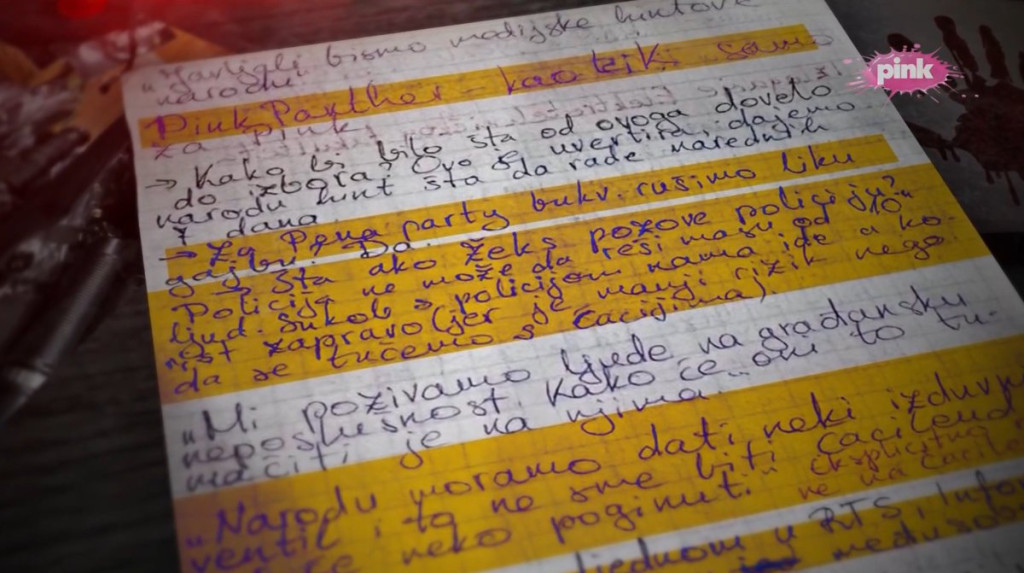 "Javljali bismo medijske huntove
narodu
Pink Panther - kao ejki samo
za pink
→ Kako bi bilo šta od ovoga dovelo
do izbora? Ovo je uvertira, dajemo
narodu hint šta da rade narednih
7 dana.
→ Za party bukv. rušimo liku
gajbu. Da.
→ Šta ako Žeks pozove policiju?
Policija ne može da reši masu od
ljud. Sukob s policijom nama ide u ko-
rist zapravo (jer je manji rizik nego
da se tučemo s ćacijima)
"Mi pozivamo ljude na građansku
neposlušnost. Kako će oni to tu-
mačiti je na njima.
"Narodu moramo dati neki izduvni
ventil, i to ne sme biti Ćacilend
će neko poginuti. eksplicitno
ne na Ćacilend
jednom u RTS, Infor
međusobn
pink